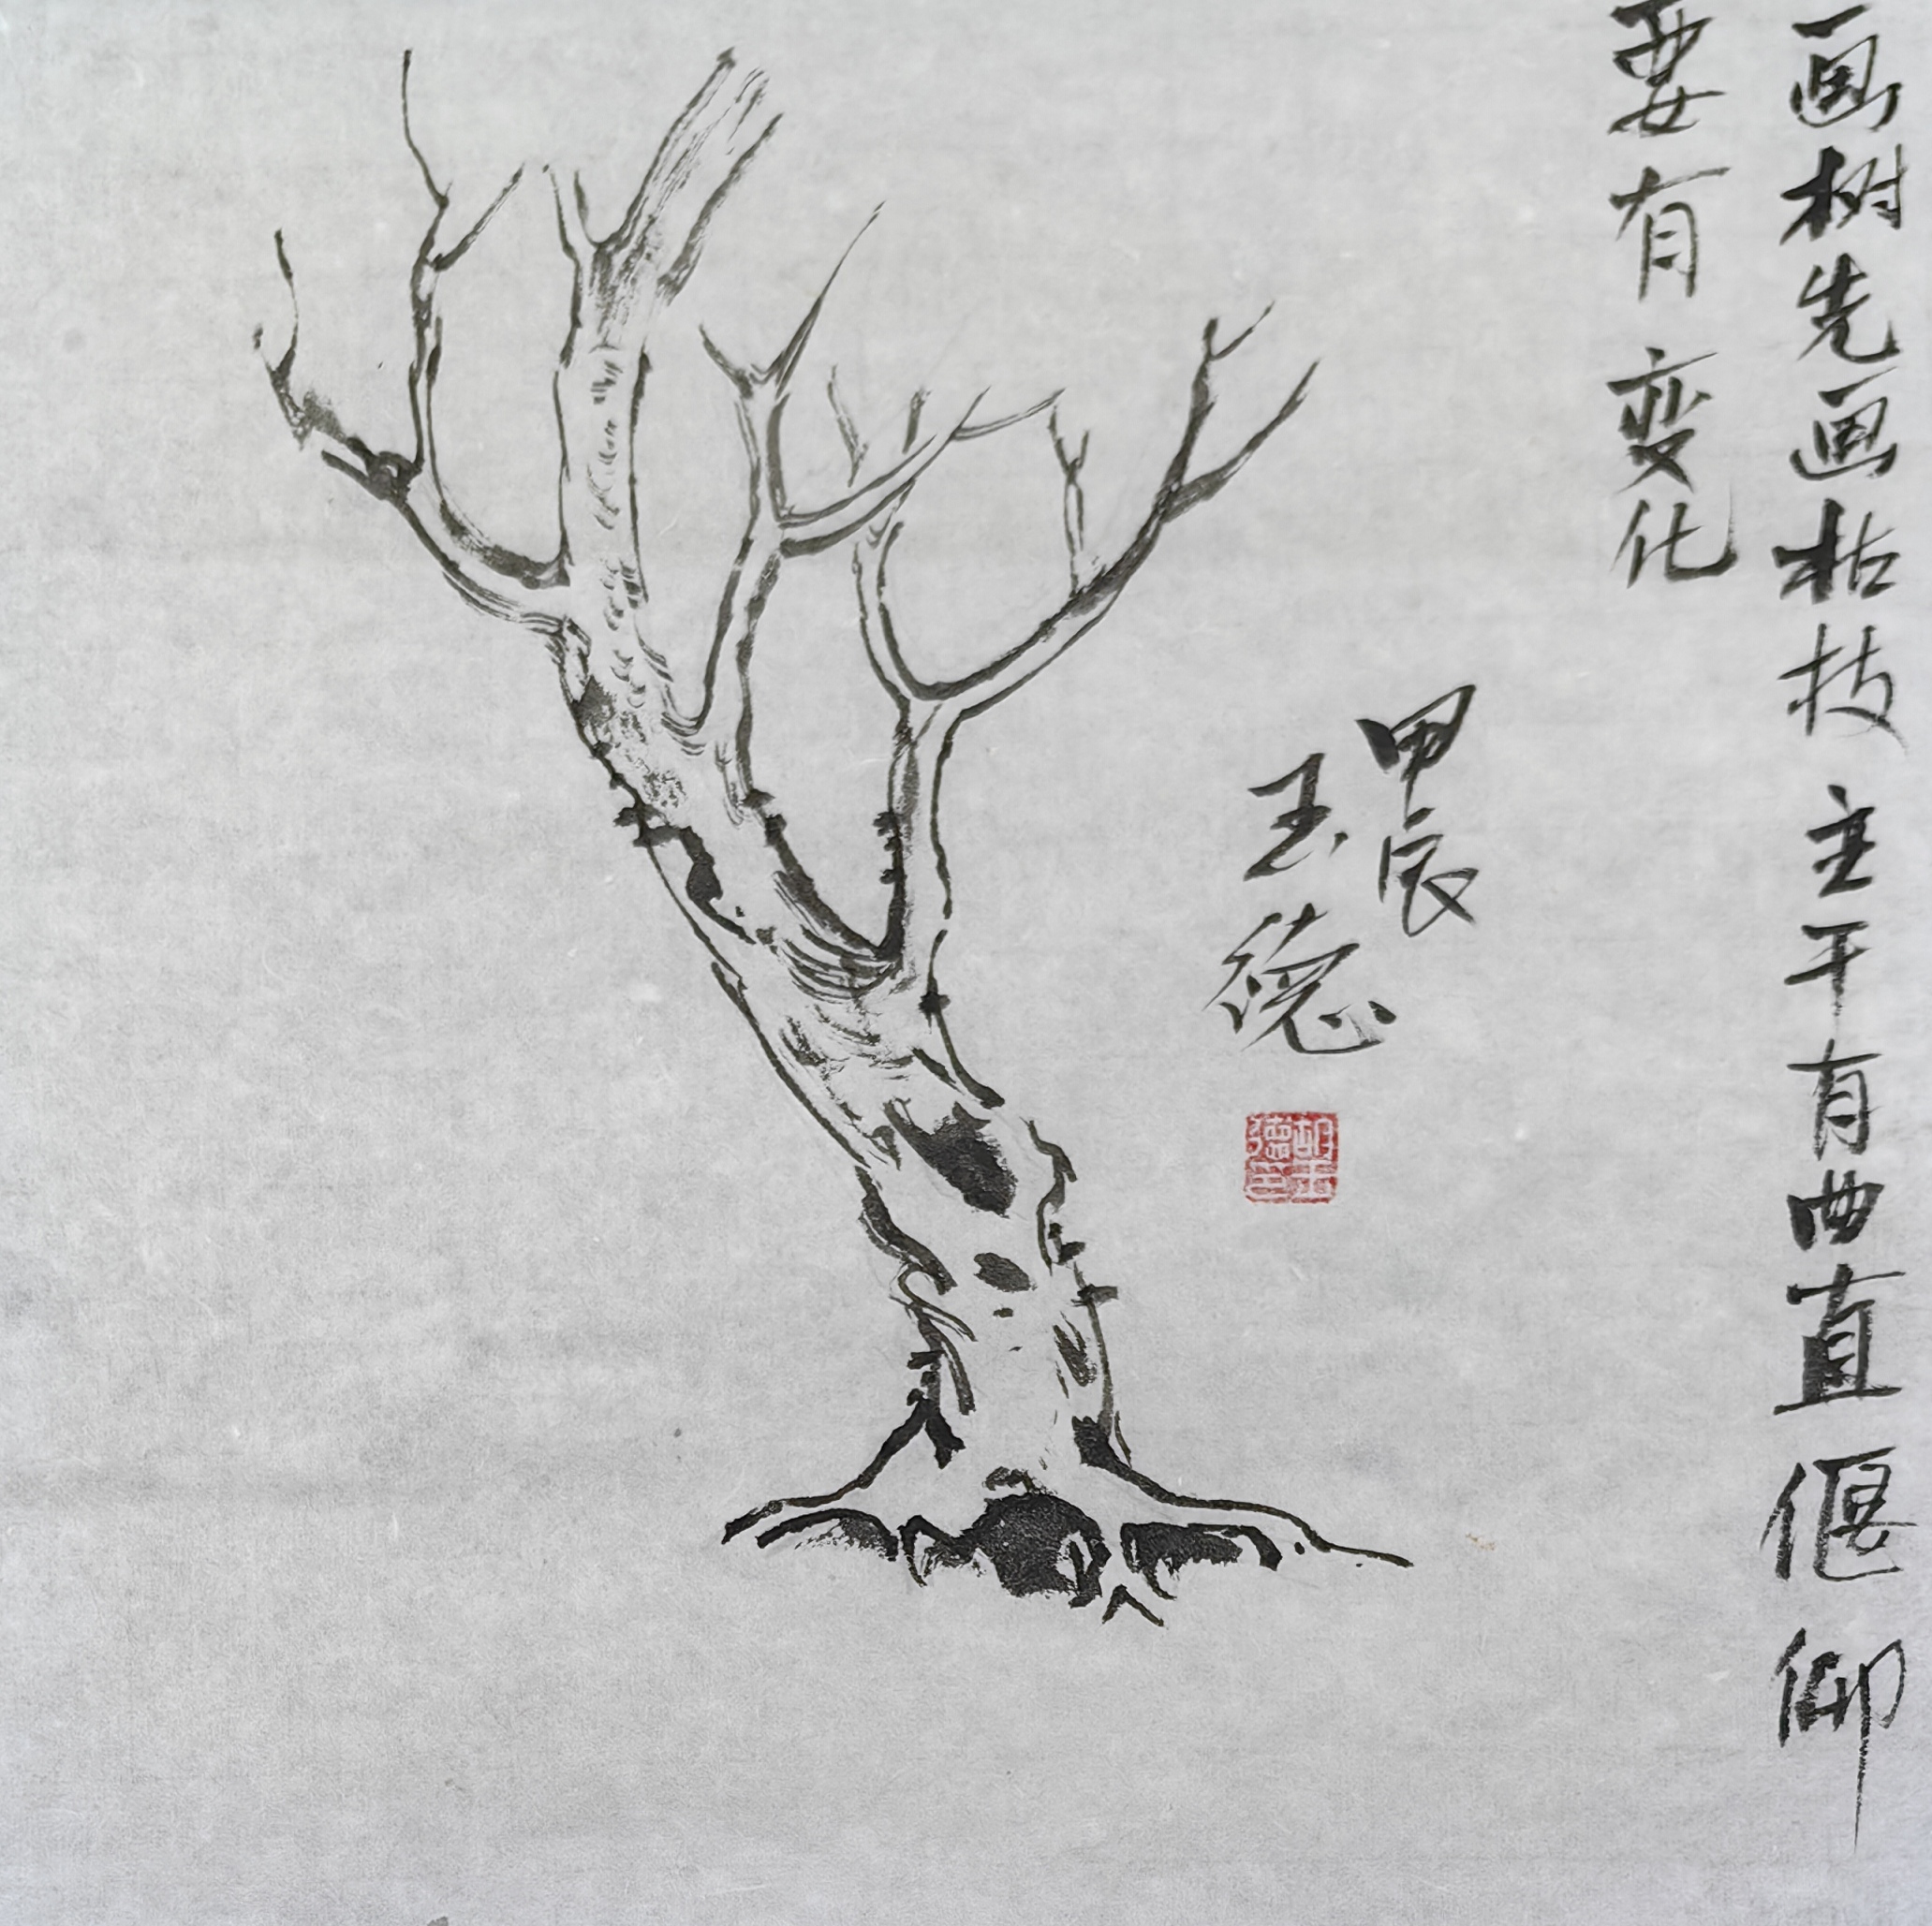 画树先画枯技主干有曲直偃仰
要有变化
甲辰
玉德
胡玉德印